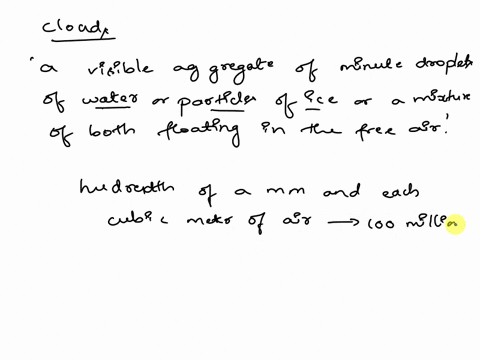 Clouds
'a visible aggregate of minute droplets
of water or particles of ice or a mixture
of both floating in the free air'
hudredth of a mm and each
cubic meter of air → 100 million